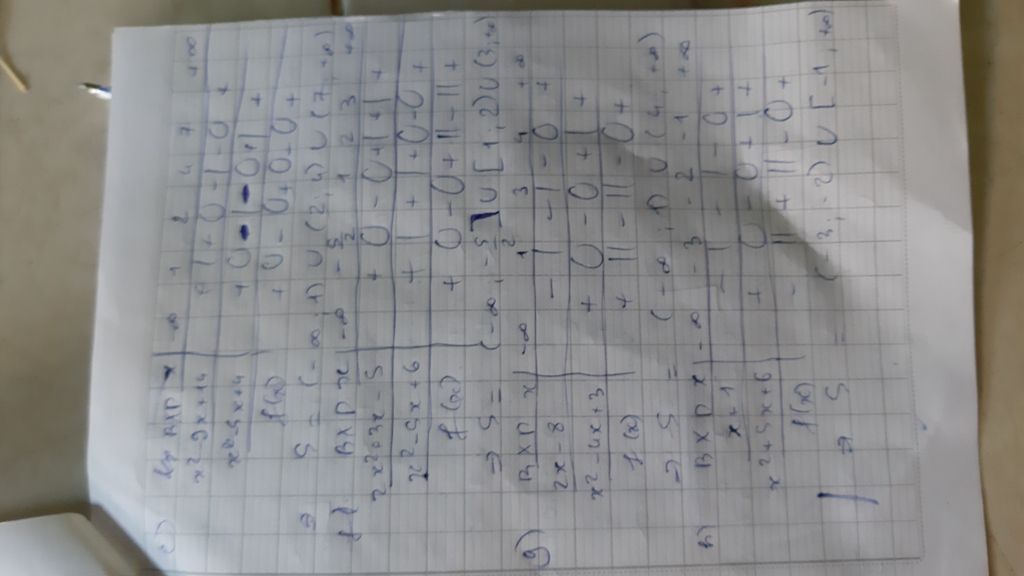 e) BXD x | -∞ 1 2 4 7 +∞
x² - 9x + 14 + | + 0 - | - 0 +
x² - 5x + 4 + 0 - | - 0 + | +
f(x) + 0 - 0 + 0 - 0 +
⇒ S = (-∞; 1) ∪ (2, 4) ∪ (7, +∞)
f) BXD x | -∞ -5/2 1 2 3 +∞
2x² + 3x - 5 + 0 - 0 + | + | +
x² - 5x + 6 + || + | + 0 - 0 +
f(x) + 0 - 0 + || - || +
⇒ S = (-∞; -5/2] ∪ [1, 2) ∪ (3, +∞)
g) BXD x | -∞ 1 3 4 +∞
2x - 8 - | - | - 0 +
x² - 4x + 3 + 0 - 0 + | +
f(x) + || - || - 0 +
⇒ S = (-∞, 1) ∪ (4, +∞)
h) BXD x | -∞ -3 -2 -1 +∞
x + 1 - | - | - 0 +
x² + 5x + 6 + 0 - 0 + | +
f(x) - || + || - 0 +
⇒ S = (-3, -2) ∪ [-1, +∞)